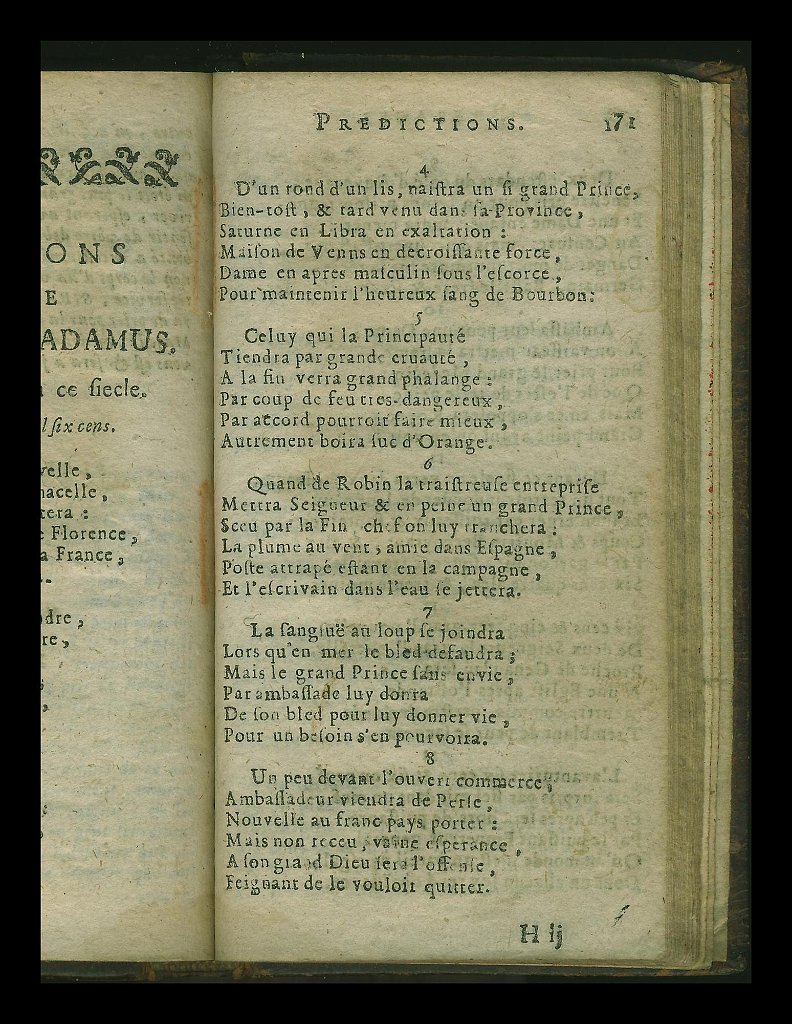 ONS
E
ADAMUS.
ce ſiecle.
l ſix cens.
elle,
nacelle,
tera :
Florence,
a France,
dre,
re,
PREDICTIONS. 171
4
D'un rond d'un lis, naiſtra un ſi grand Prince,
Bien-toſt, & tard venu dans ſa Province,
Saturne en Libra en exaltation :
Maiſon de Venns en decroiſſante force,
Dame en apres maſculin ſous l'eſcorce,
Pour maintenir l'heureux ſang de Bourbon:
5
Celuy qui la Principauté
Tiendra par grande cruauté,
A la fin verra grand phalange :
Par coup de feu tres-dangereux,
Par accord pourroit faire mieux,
Autrement boira ſuc d'Orange.
6
Quand de Robin la traiſtreuſe entrepriſe
Mettra Seigneur & en peine un grand Prince,
Sceu par la Fin, chef on luy tranchera :
La plume au vent, amie dans Eſpagne,
Poſte attrapé eſtant en la campagne,
Et l'eſcrivain dans l'eau ſe jettera.
7
La ſangſuë au loup ſe joindra
Lors qu'en mer le bled defaudra ;
Mais le grand Prince ſans envie,
Par ambaſſade luy donra
De ſon bled pour luy donner vie,
Pour un beſoin s'en pourvoira.
8
Un peu devant l'ouvert commerce,
Ambaſſadeur viendra de Perſe,
Nouvelle au franc pays porter :
Mais non receu, vaine eſperance,
A ſon grand Dieu ſera l'offenſe,
Feignant de le vouloir quitter.
H ij